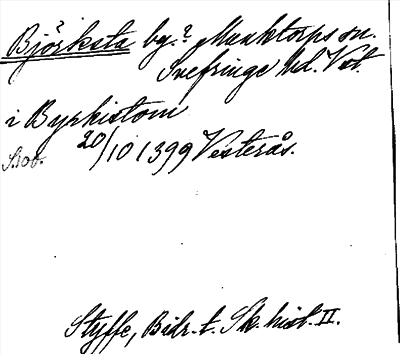 ?
Björksta by.? Munktorps sn.
Snefringe hd. Vstm.
i Byrkistom
20/10 1399 Vesterås.
Styffe, Bidr. t. Sk. hist. II.